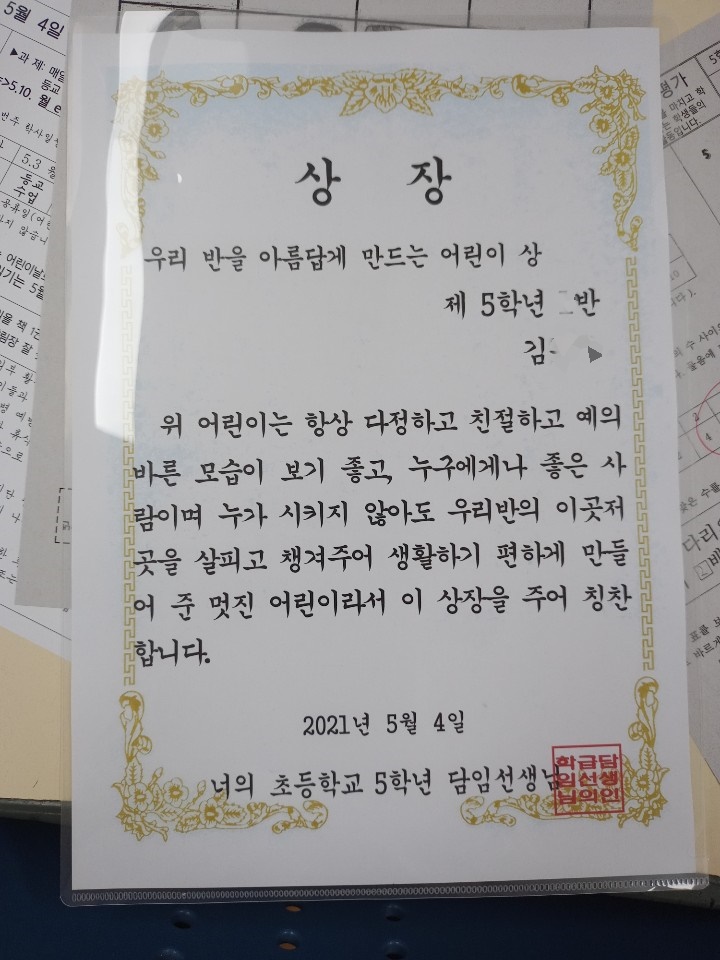 상 장
우리 반을 아름답게 만드는 어린이 상
제 5학년 반
김
위 어린이는 항상 다정하고 친절하고 예의
바른 모습이 보기 좋고, 누구에게나 좋은 사
람이며 누가 시키지 않아도 우리반의 이곳저
곳을 살피고 챙겨주어 생활하기 편하게 만들
어 준 멋진 어린이라서 이 상장을 주어 칭찬
합니다.
2021년 5월 4일
너의 초등학교 5학년 담임선생님
학급담
임선생
님의인
5월 4일
▶과 제: 매일
등교
5.3
등교
수업
평가
다리